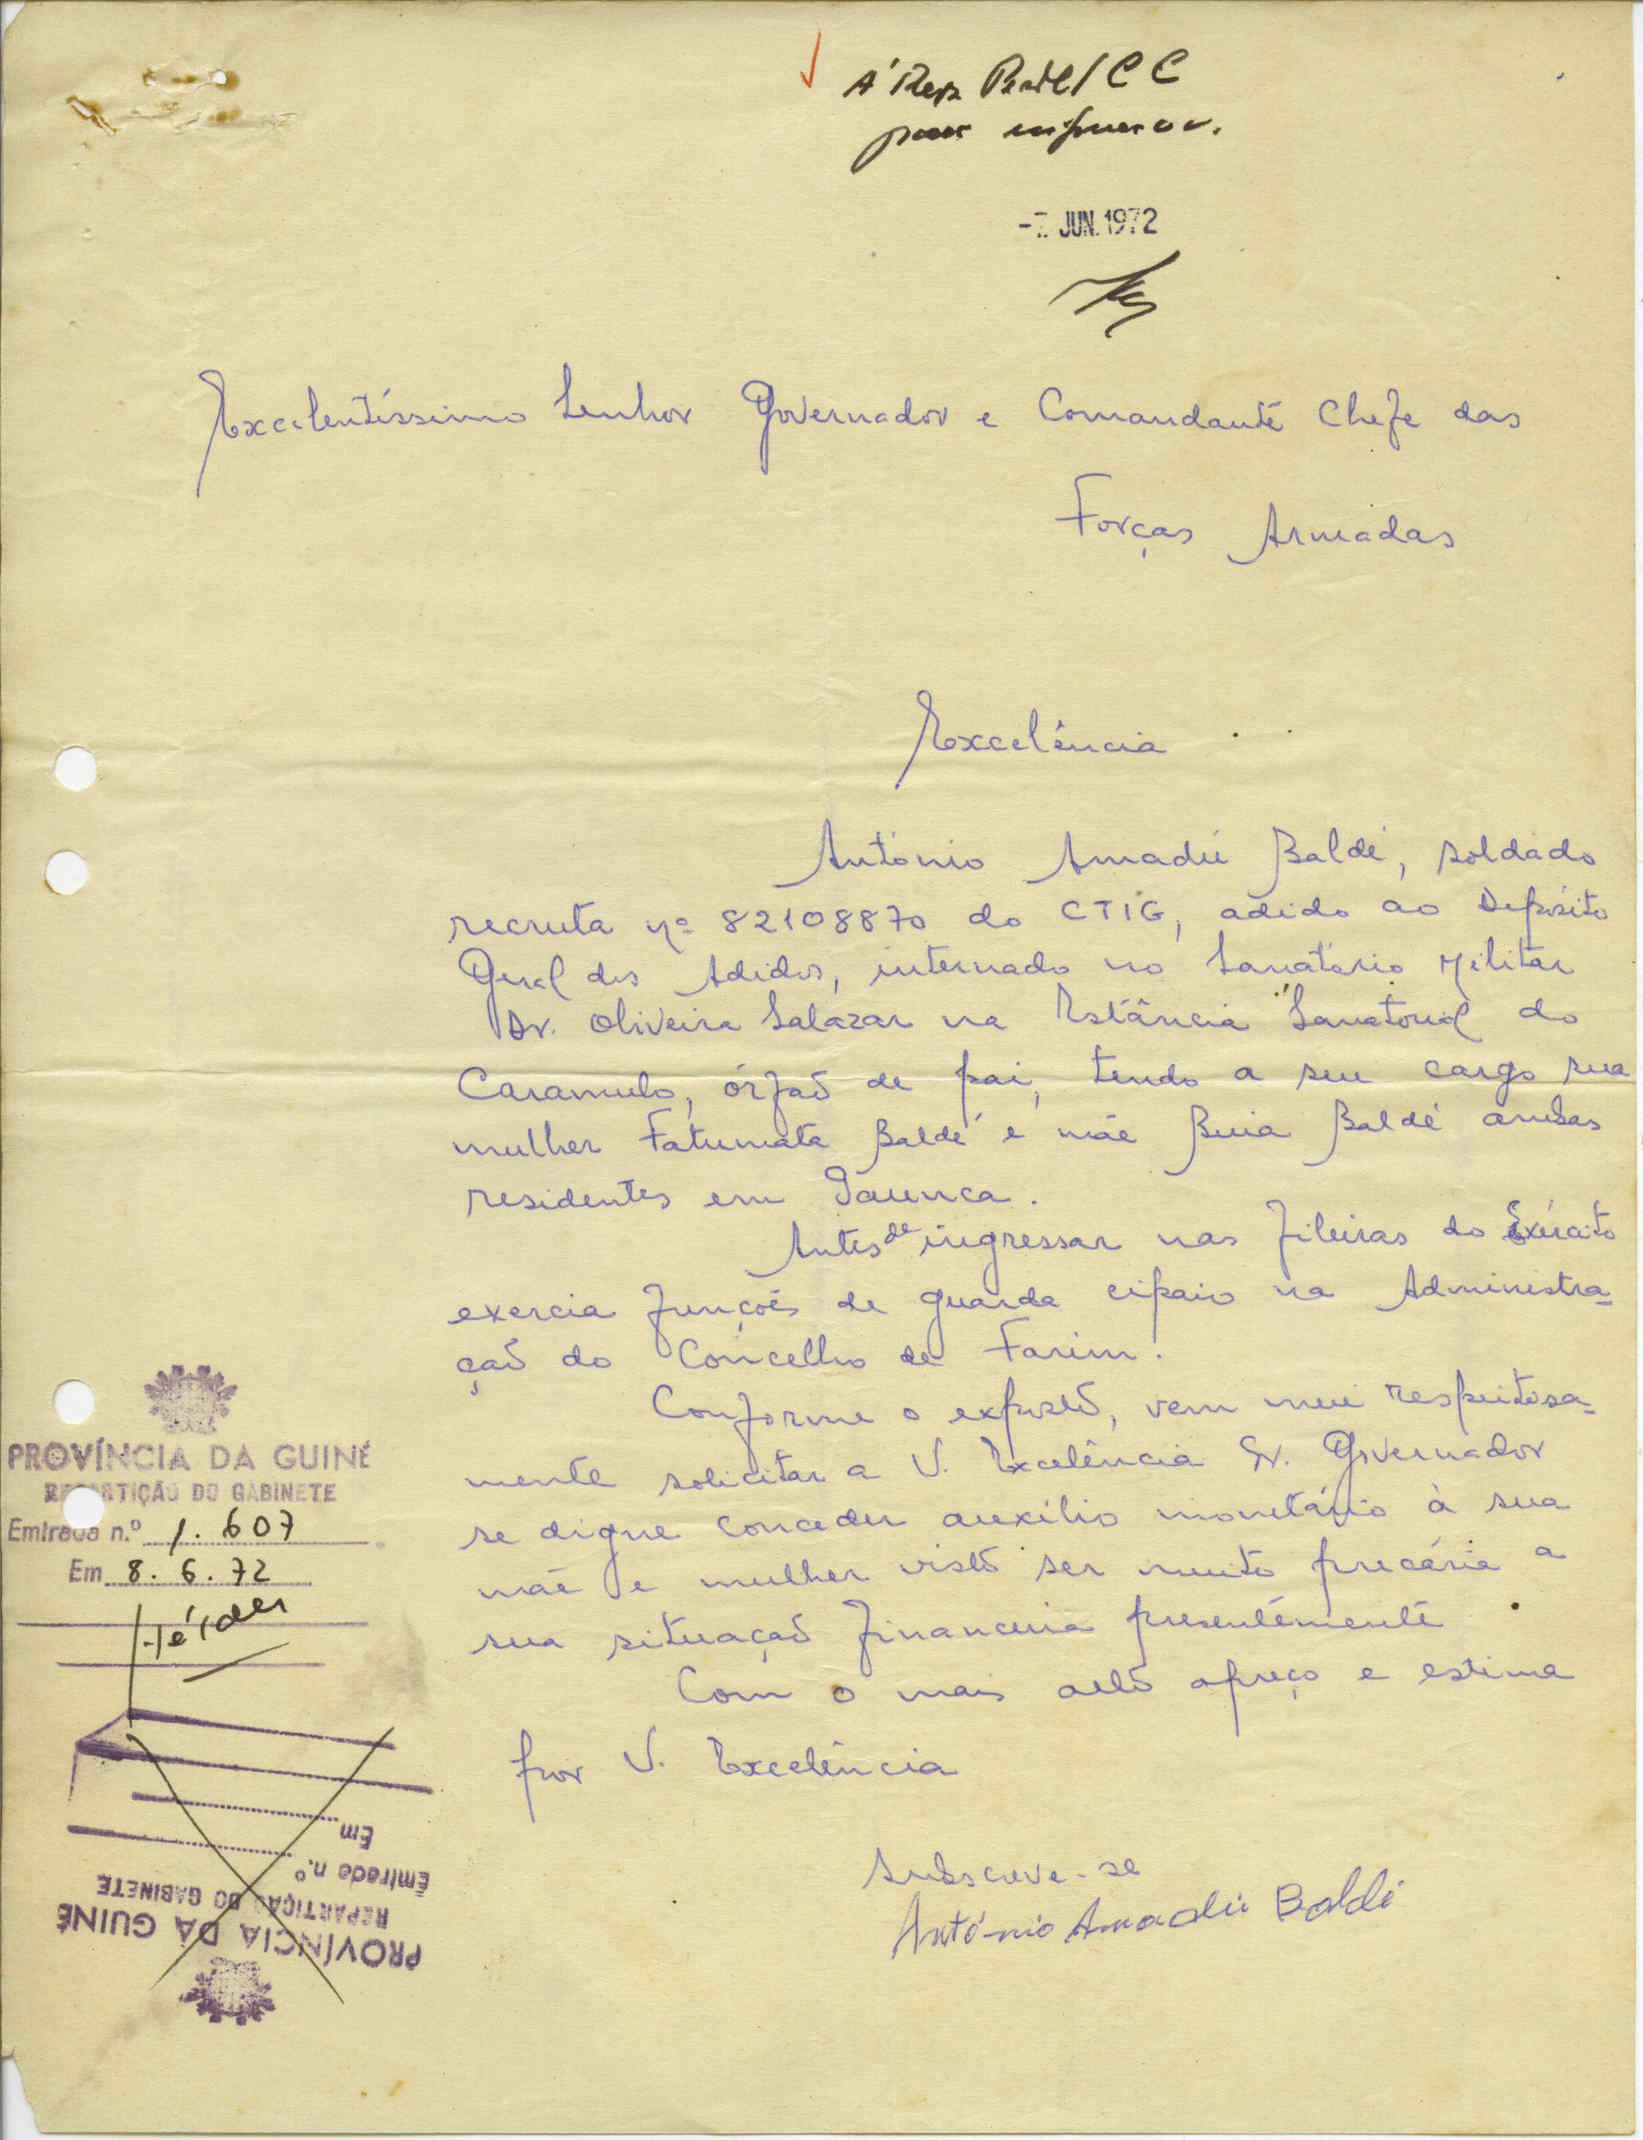 À Rep Pess/CC
para informar.
-7. JUN. 1972
Excelentíssimo Senhor Governador e Comandante Chefe das
Forças Armadas
Excelência
António Amadú Baldé, soldado
recruta nº 82108870 do CTIG, adido ao Depósito
Geral dos Adidos, internado no Sanatório Militar
Dr. Oliveira Salazar na Estância Sanatorial do
Caramulo, órfaõ de pai, tendo a seu cargo sua
mulher Fatumata Baldé e mãe Baldé ambas
residentes em
Antes de ingressar nas fileiras do Exército
exercia funçoẽs de guarda cipaio na Administra-
çaõ do Concelho de Farim.
Conforme o exposto, vem mui respeitosa-
mente solicitar a V. Excelência Sr. Governador
se digne conceder auxílio monetário à sua
mãe e mulher visto ser muito precária a
sua situaçaõ financeira presentemente
Com o mais alto apreço e estima
por V. Excelência
Subscreve-se
António Amadú Baldé
PROVÍNCIA DA GUINÉ
REPARTIÇÃO DO GABINETE
Entrada n.º 1.607
Em 8.6.72
PROVÍNCIA DA GUINÉ
REPARTIÇÃO DO GABINETE
Entrada n.º
Em